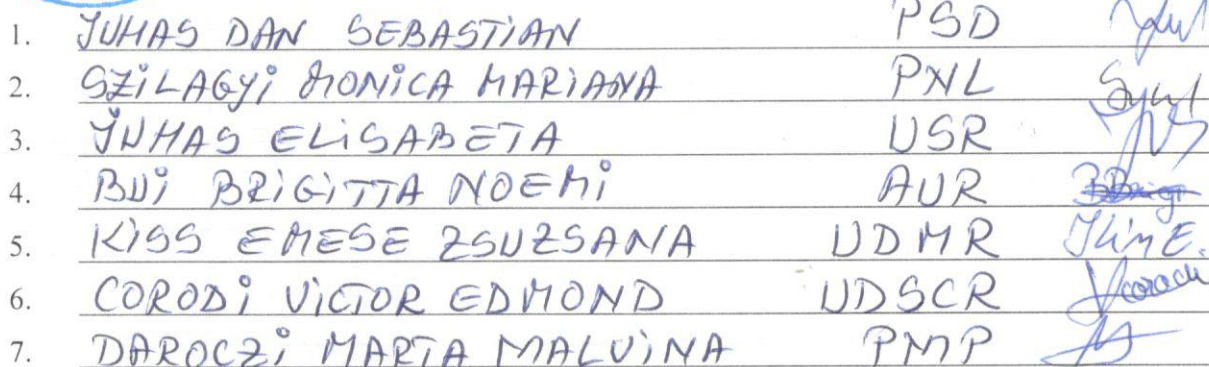 1. JUHAS DAN SEBASTIAN PSD
2. SZILAGYI MONICA MARIANA PNL
3. JUHAS ELISABETA USR
4. BUI BRIGITTA NOEMI AUR
5. KISS EMESE ZSUZSANA UDMR
6. CORODI VICTOR EDMOND UDSCR
7. DAROCZI MARTA MALVINA PMP